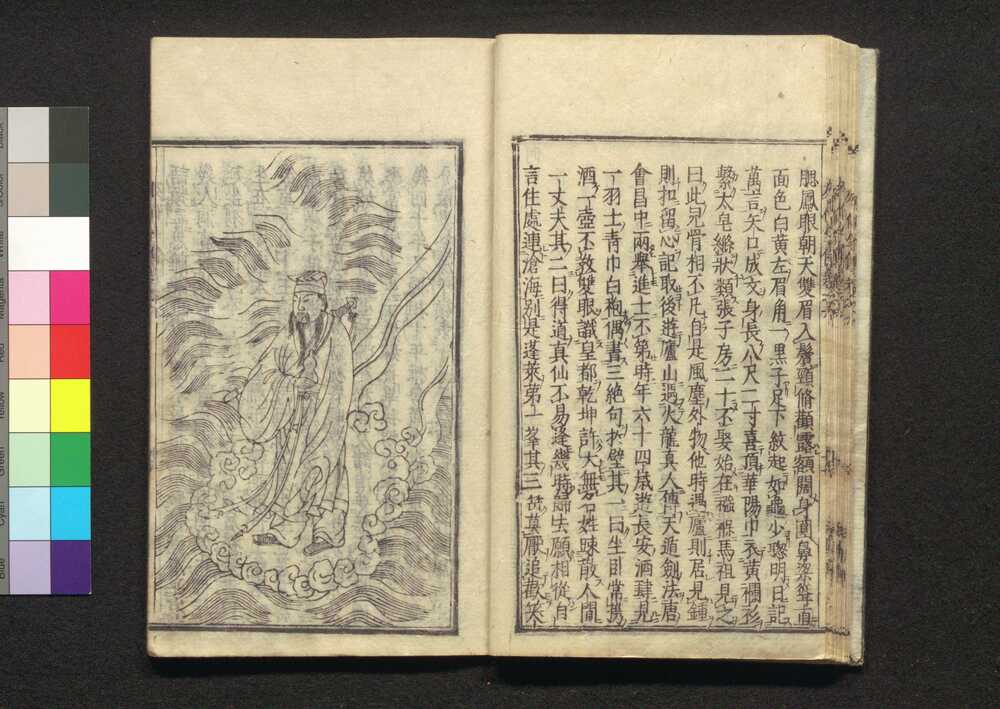 腮鳳眼朝天雙眉入鬢頸修顴露額闊身圓鼻梁聳直
面色白黄左眉角一黒子足下紋起如龜少聰明日記
萬言矢口成文身長八尺二寸喜頂華陽巾衣黄襴衫
繫大皂絛狀類張子房二十不娶始在襁褓馬祖見之
曰此兒骨相不凡自是風塵外物他時遇廬則居見鍾
則扣留心記取後遊廬山遇火龍真人傳天遁劔法唐
會昌中兩舉進士不第時年六十四歳遊長安酒肆見
一羽士青巾白袍偶書三絶句於壁其一曰坐臥常携
酒一壺不教雙眼識皇都乾坤許大無名姓踈散人間
一丈夫其二曰得道真仙不易逢幾時歸去願相從自
言住處連滄海别是蓬萊第一峯其三曰莫厭追歡笑
Black
3/Color
White
Magenta
Red
Yellow
Green
Cyan
Blue